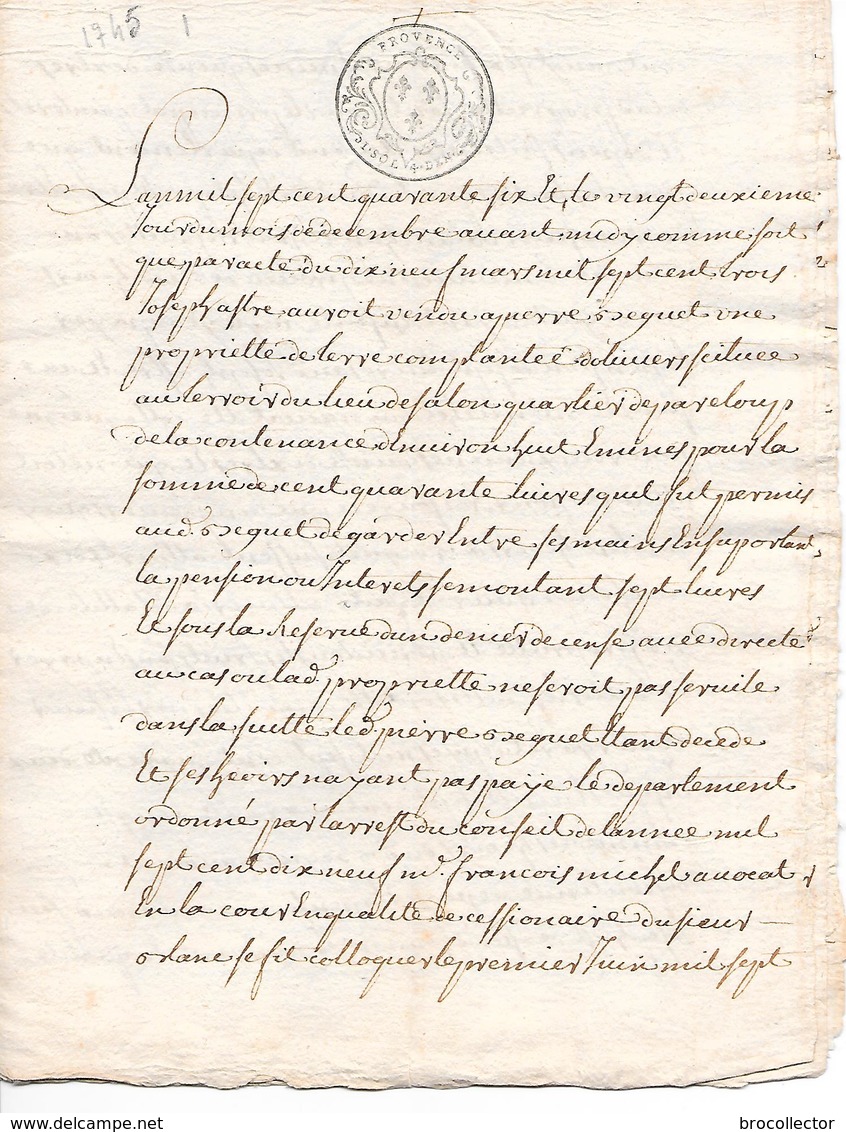 1745 1
PROVENCE
1. SOL V 4. DEN.
Lan mil sept cent quarante six Et le vingt deuxieme
Jour du mois de decembre avant midy comme soit
que par acte du dix neuf mars mil sept cent trois
Joseph astre auroit vendu a pierre exeguet une
proprieté de terre complanteé d'oliuiers scituée
au terroir du lieu de salon quartier de pareloup
de la contenance d'enuiron huit Emines pour la
somme de cent quarante liures quil fut permis
aud. exeguet de garder Entre ses mains En suportant
la pension ou Interets se montant sept liures
Et sous la Reserue dun denier de cense auec directe
au cas ou lad. proprieté ne seroit pas seruile
dans la suitte led. pierre exeguet Etant decedé
Et ses heoirs nayant pas payé le departement
ordonné par larrest du conseil de lannee mil
sept cent dix neuf m. francois michel auocat
En la cour En qualité de cessionaire du sieur
se fit colloquer le premier Juin mil sept
delcampe.net
brocollector